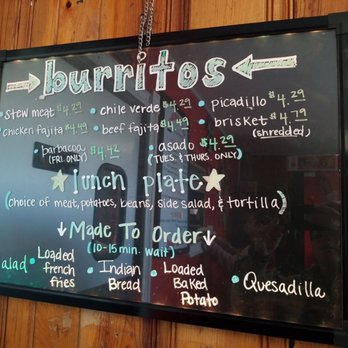 → burritos ←
• stew meat $4.29 • chile verde $4.29 • picadillo $4.29
chicken fajita $4.49 • beef fajita $4.49 • brisket $4.79
(shredded)
• barbacoa $4.42 • asado $4.29
(FRI. ONLY) (TUES. & THURS. ONLY)
★ lunch plate ★
(choice of meat, potatoes, beans, side salad, & tortilla)
↓ Made To Order ↓
(10-15 min. wait)
alad • Loaded french fries • Indian Bread • Loaded Baked Potato • Quesadilla